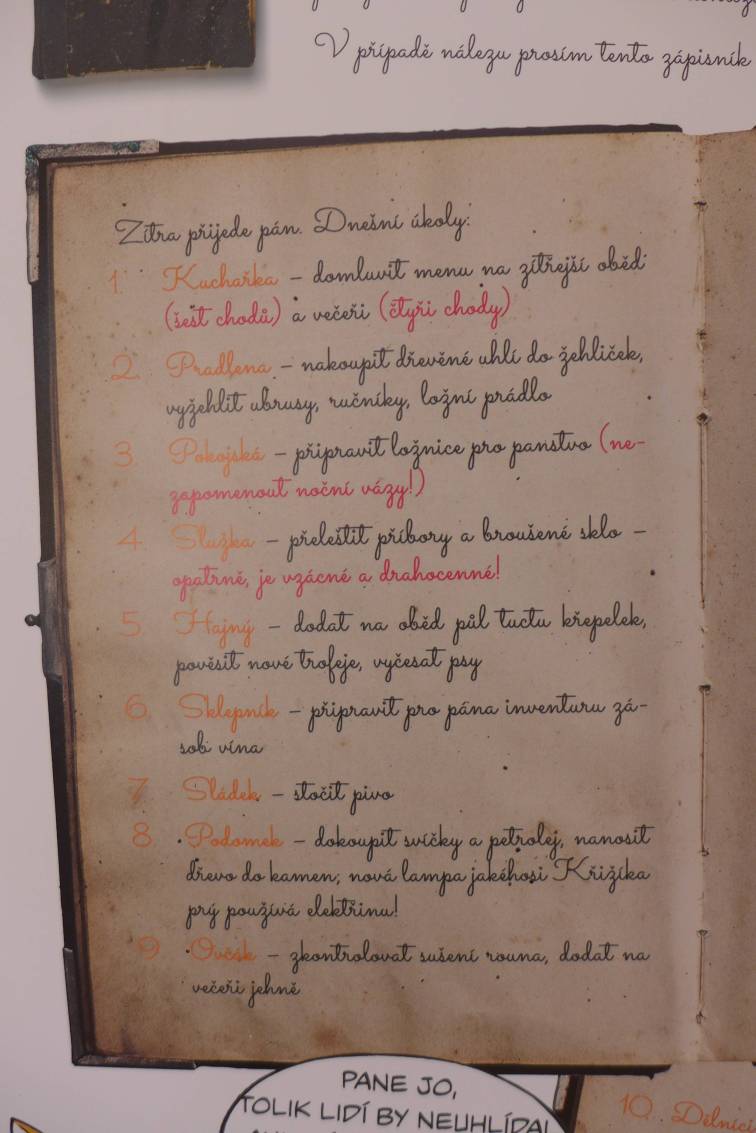 V případě nálezu prosím tento zápisník
Zítra přijede pán. Dnešní úkoly:
1. Kuchařka – domluvit menu na zítřejší oběd
(šest chodů) a večeři (čtyři chody)
2. Pradlena – nakoupit dřevěné uhlí do žehliček,
vyžehlit ubrusy, ručníky, ložní prádlo
3. Pokojská – připravit ložnice pro panstvo (ne-
zapomenout noční vázy!)
4. Služka – přeleštit příbory a broušené sklo –
opatrně, je vzácné a drahocenné!
5. Hajný – dodat na oběd půl tuctu křepelek,
pověsit nové trofeje, vyčesat psy
6. Sklepník – připravit pro pána inventuru zá-
sob vína
7. Sládek – stočit pivo
8. Podomek – dokoupit svíčky a petrolej, nanosit
dřevo do kamen; nová lampa jakéhosi Křižíka
prý používá elektřinu!
9. Ovčák – zkontrolovat sušení rouna, dodat na
večeři jehně
PANE JO,
TOLIK LIDÍ BY NEUHLÍDAL
10. Dělníc